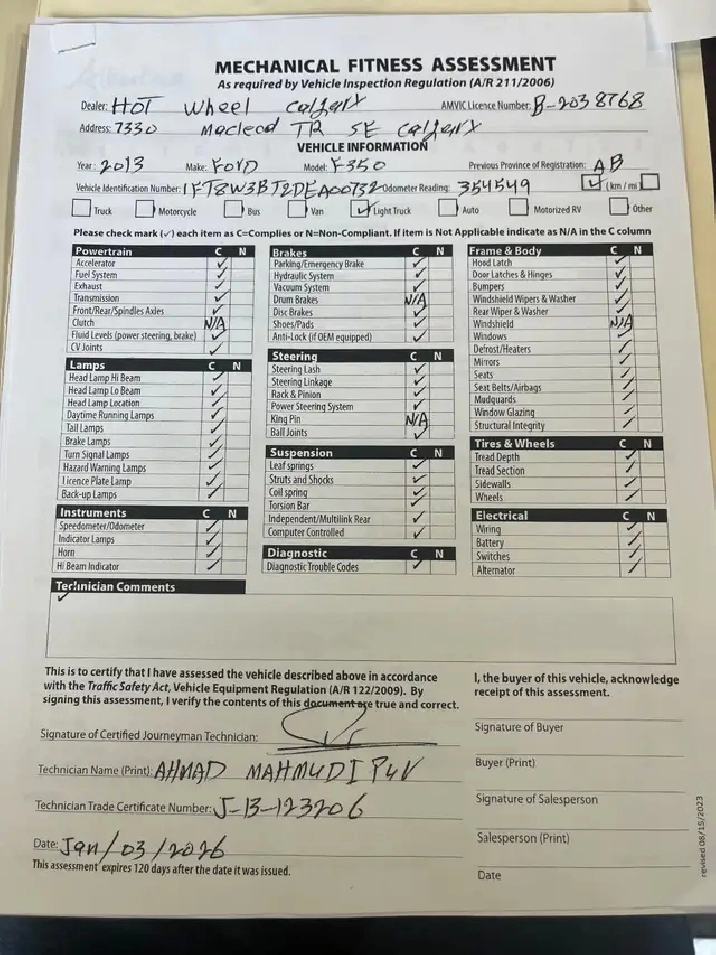 MECHANICAL FITNESS ASSESSMENT
As required by Vehicle Inspection Regulation (A/R 211/2006)
Dealer: HOT Wheel Calgary AMVIC Licence Number: B-2038768
Address: 7330 Macleod TR SE Calgary
VEHICLE INFORMATION
Year: 2013 Make: FORD Model: F350 Previous Province of Registration: AB
Vehicle Identification Number: 1FT8W3BT2DEA00732 Odometer Reading: 354549 ✓ (km / mi)
Truck Motorcycle Bus Van ✓ Light Truck Auto Motorized RV Other
Please check mark (✓) each item as C=Complies or N=Non-Compliant. If item is Not Applicable indicate as N/A in the C column
Powertrain C N
Accelerator ✓
Fuel System ✓
Exhaust ✓
Transmission ✓
Front/Rear/Spindles Axles ✓
Clutch N/A
Fluid Levels (power steering, brake) ✓
CV Joints ✓
Lamps C N
Head Lamp Hi Beam ✓
Head Lamp Lo Beam ✓
Head Lamp Location ✓
Daytime Running Lamps ✓
Tail Lamps ✓
Brake Lamps ✓
Turn Signal Lamps ✓
Hazard Warning Lamps ✓
Licence Plate Lamp ✓
Back-up Lamps ✓
Instruments C N
Speedometer/Odometer ✓
Indicator Lamps ✓
Horn ✓
Hi Beam Indicator ✓
Brakes C N
Parking/Emergency Brake ✓
Hydraulic System ✓
Vacuum System ✓
Drum Brakes N/A
Disc Brakes ✓
Shoes/Pads ✓
Anti-Lock (if OEM equipped) ✓
Steering C N
Steering Lash ✓
Steering Linkage ✓
Rack & Pinion ✓
Power Steering System ✓
King Pin N/A
Ball Joints ✓
Suspension C N
Leaf springs ✓
Struts and Shocks ✓
Coil spring ✓
Torsion Bar ✓
Independent/Multilink Rear ✓
Computer Controlled ✓
Diagnostic C N
Diagnostic Trouble Codes ✓
Frame & Body C N
Hood Latch ✓
Door Latches & Hinges ✓
Bumpers ✓
Windshield Wipers & Washer ✓
Rear Wiper & Washer ✓
Windshield N/A
Windows ✓
Defrost/Heaters ✓
Mirrors ✓
Seats ✓
Seat Belts/Airbags ✓
Mudguards ✓
Window Glazing ✓
Structural Integrity ✓
Tires & Wheels C N
Tread Depth ✓
Tread Section ✓
Sidewalls ✓
Wheels ✓
Electrical C N
Wiring ✓
Battery ✓
Switches ✓
Alternator ✓
Technician Comments
✓
This is to certify that I have assessed the vehicle described above in accordance
with the Traffic Safety Act, Vehicle Equipment Regulation (A/R 122/2009). By
signing this assessment, I verify the contents of this document are true and correct.
Signature of Certified Journeyman Technician:
Technician Name (Print): AHMAD MAHMUDI
Technician Trade Certificate Number: J-13-123206
Date: Jan/03/2026
This assessment expires 120 days after the date it was issued.
I, the buyer of this vehicle, acknowledge
receipt of this assessment.
Signature of Buyer
Buyer (Print)
Signature of Salesperson
Salesperson (Print)
Date
revised 08/15/2023